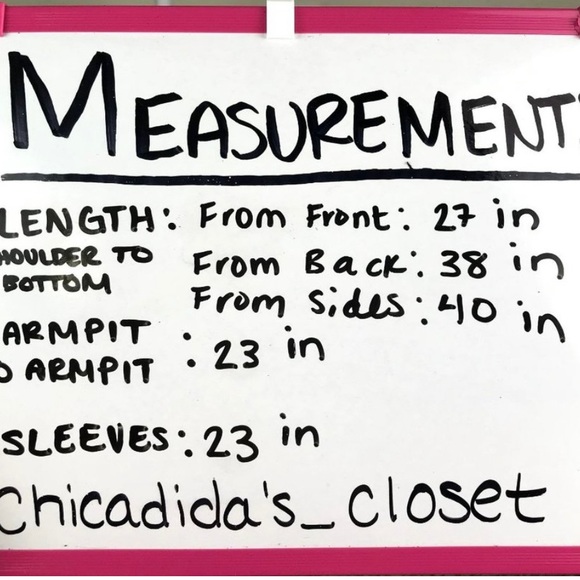 MEASUREMENT
LENGTH: From Front: 27 in
HOULDER TO From Back: 38 in
BOTTOM From Sides: 40 in
ARMPIT
O ARMPIT : 23 in
SLEEVES: 23 in
Chicadida's_closet